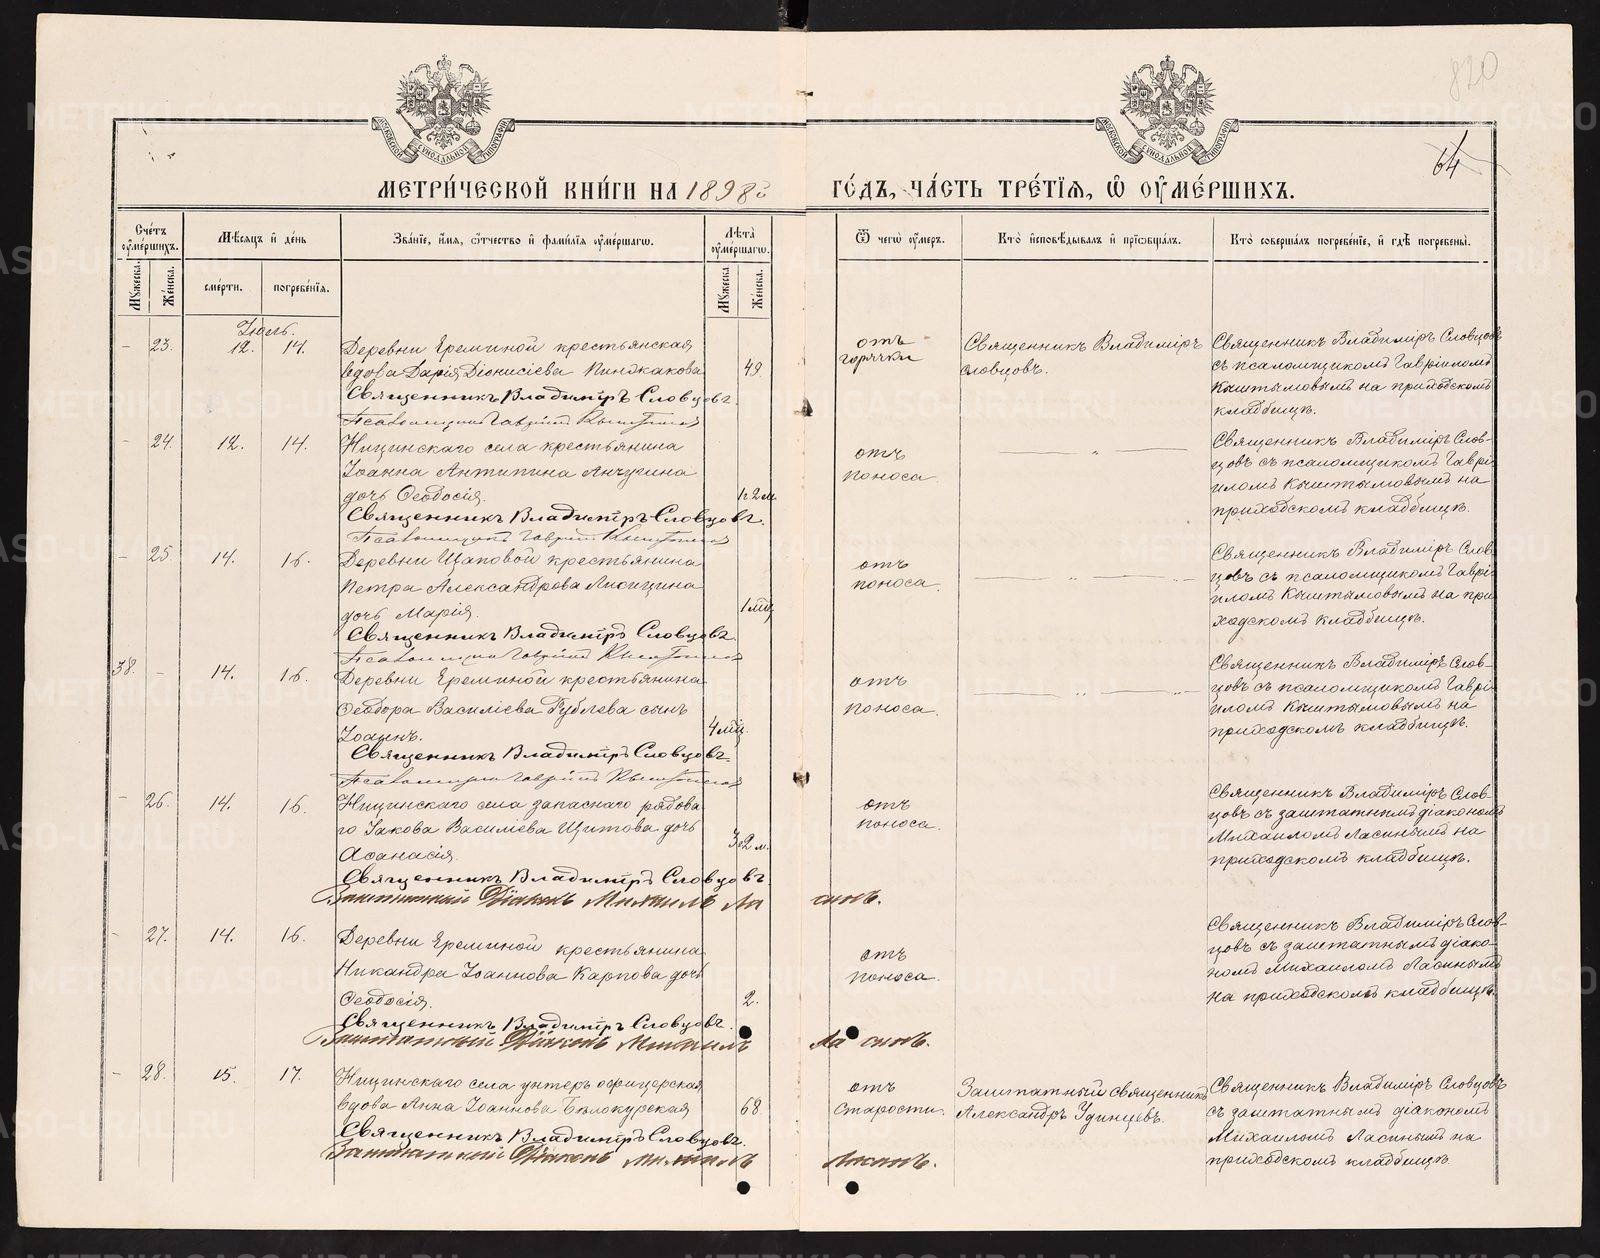 820
64
МЕТРИ́ЧЕСКОЙ КНИ́ГИ НА 1898й ГО́ДЪ, ЧА́СТЬ ТРЕ́ТЇѦ, Ѡ ОУ҆МЕ́РШИХЪ.
Сче́тъ оу҆ме́ршихъ.
Мꙋжеска.
Же́нска.
Мѣ́сѧцъ и҆ де́нь
сме́рти.
погребе́нїѧ.
Зва́нїе, и҆́мѧ, ѻ҆́тчество и҆ фами́лїѧ оу҆ме́ршагѡ.
Лѣ́та оу҆ме́ршагѡ.
Мꙋжеска.
Же́нска.
Ѿ чегѡ̀ оу҆́меръ.
Кто̀ и҆сповѣ́дывалъ и҆ прїѡбща́лъ.
Кто̀ соверша́лъ погребе́нїе, и҆ гдѣ̀ погребены̀.
Іюль.
- 23. 12. 14. Деревни Ереминой крестьянская
вдова Дарія Діонисіева Пинжакова 49
Священникъ Владиміръ Словцовъ.
отъ
горячки
Священникъ Владиміръ
Словцовъ.
Священникъ Владиміръ Словцовъ
съ псаломщикомъ Гавріиломъ
Кыштымовымъ на приходскомъ
кладбищѣ.
- 24. 12. 14. Ницинскаго села крестьянина
Іоанна Антипина Анчугина
дочь Ѳеодосія. 1г. 2 м.
Священникъ Владиміръ Словцовъ.
отъ
поноса.
— „ —
Священникъ Владиміръ Слов-
цовъ съ псаломщикомъ Гаврі-
иломъ Кыштымовымъ на
приходскомъ кладбищѣ.
- 25. 14. 16. Деревни Щаповой крестьянина
Петра Александрова
дочь Марія. 1 мѣц
Священникъ Владиміръ Словцовъ.
отъ
поноса.
— „ —
Священникъ Владиміръ Слов-
цовъ съ псаломщикомъ Гаврі-
иломъ Кыштымовымъ на при-
ходскомъ кладбищѣ.
38. - 14. 16. Деревни Ереминой крестьянина
Ѳеодора Василіева Рублева сынъ
Іоаннъ. 4 мѣц.
Священникъ Владиміръ Словцовъ.
отъ
поноса.
— „ —
Священникъ Владиміръ Слов-
цовъ съ псаломщикомъ Гаврі-
иломъ Кыштымовымъ на
приходскомъ кладбищѣ.
- 26. 14. 16. Ницинскаго села запаснаго рядова-
го Іакова Василіева Щитова дочь
Аѳанасія. 3г. 2 м.
Священникъ Владиміръ Словцовъ.
Заштатный Діаконъ Михаилъ Ласинъ.
отъ
поноса.
Священникъ Владиміръ Слов-
цовъ съ заштатнымъ діакономъ
Михаиломъ Ласинымъ на
приходскомъ кладбищѣ.
- 27. 14. 16. Деревни Ереминой крестьянина
Никандра Іоаннова Карпова дочь
Ѳеодосія. 2.
Священникъ Владиміръ Словцовъ.
Заштатный Діаконъ Михаилъ Ласинъ.
отъ
поноса.
Священникъ Владиміръ Слов-
цовъ съ заштатнымъ діако-
номъ Михаиломъ Ласинымъ
на приходскомъ кладбищѣ.
- 28. 15. 17. Ницинскаго села унтеръ офицерская
вдова Анна Іоаннова Бѣлокурская 68
Священникъ Владиміръ Словцовъ.
Заштатный Діаконъ Михаилъ Ласинъ.
отъ
старости.
Заштатный священникъ
Александръ Удинцевъ.
Священникъ Владиміръ Словцовъ
съ заштатнымъ діакономъ
Михаиломъ Ласинымъ на
приходскомъ кладбищѣ.